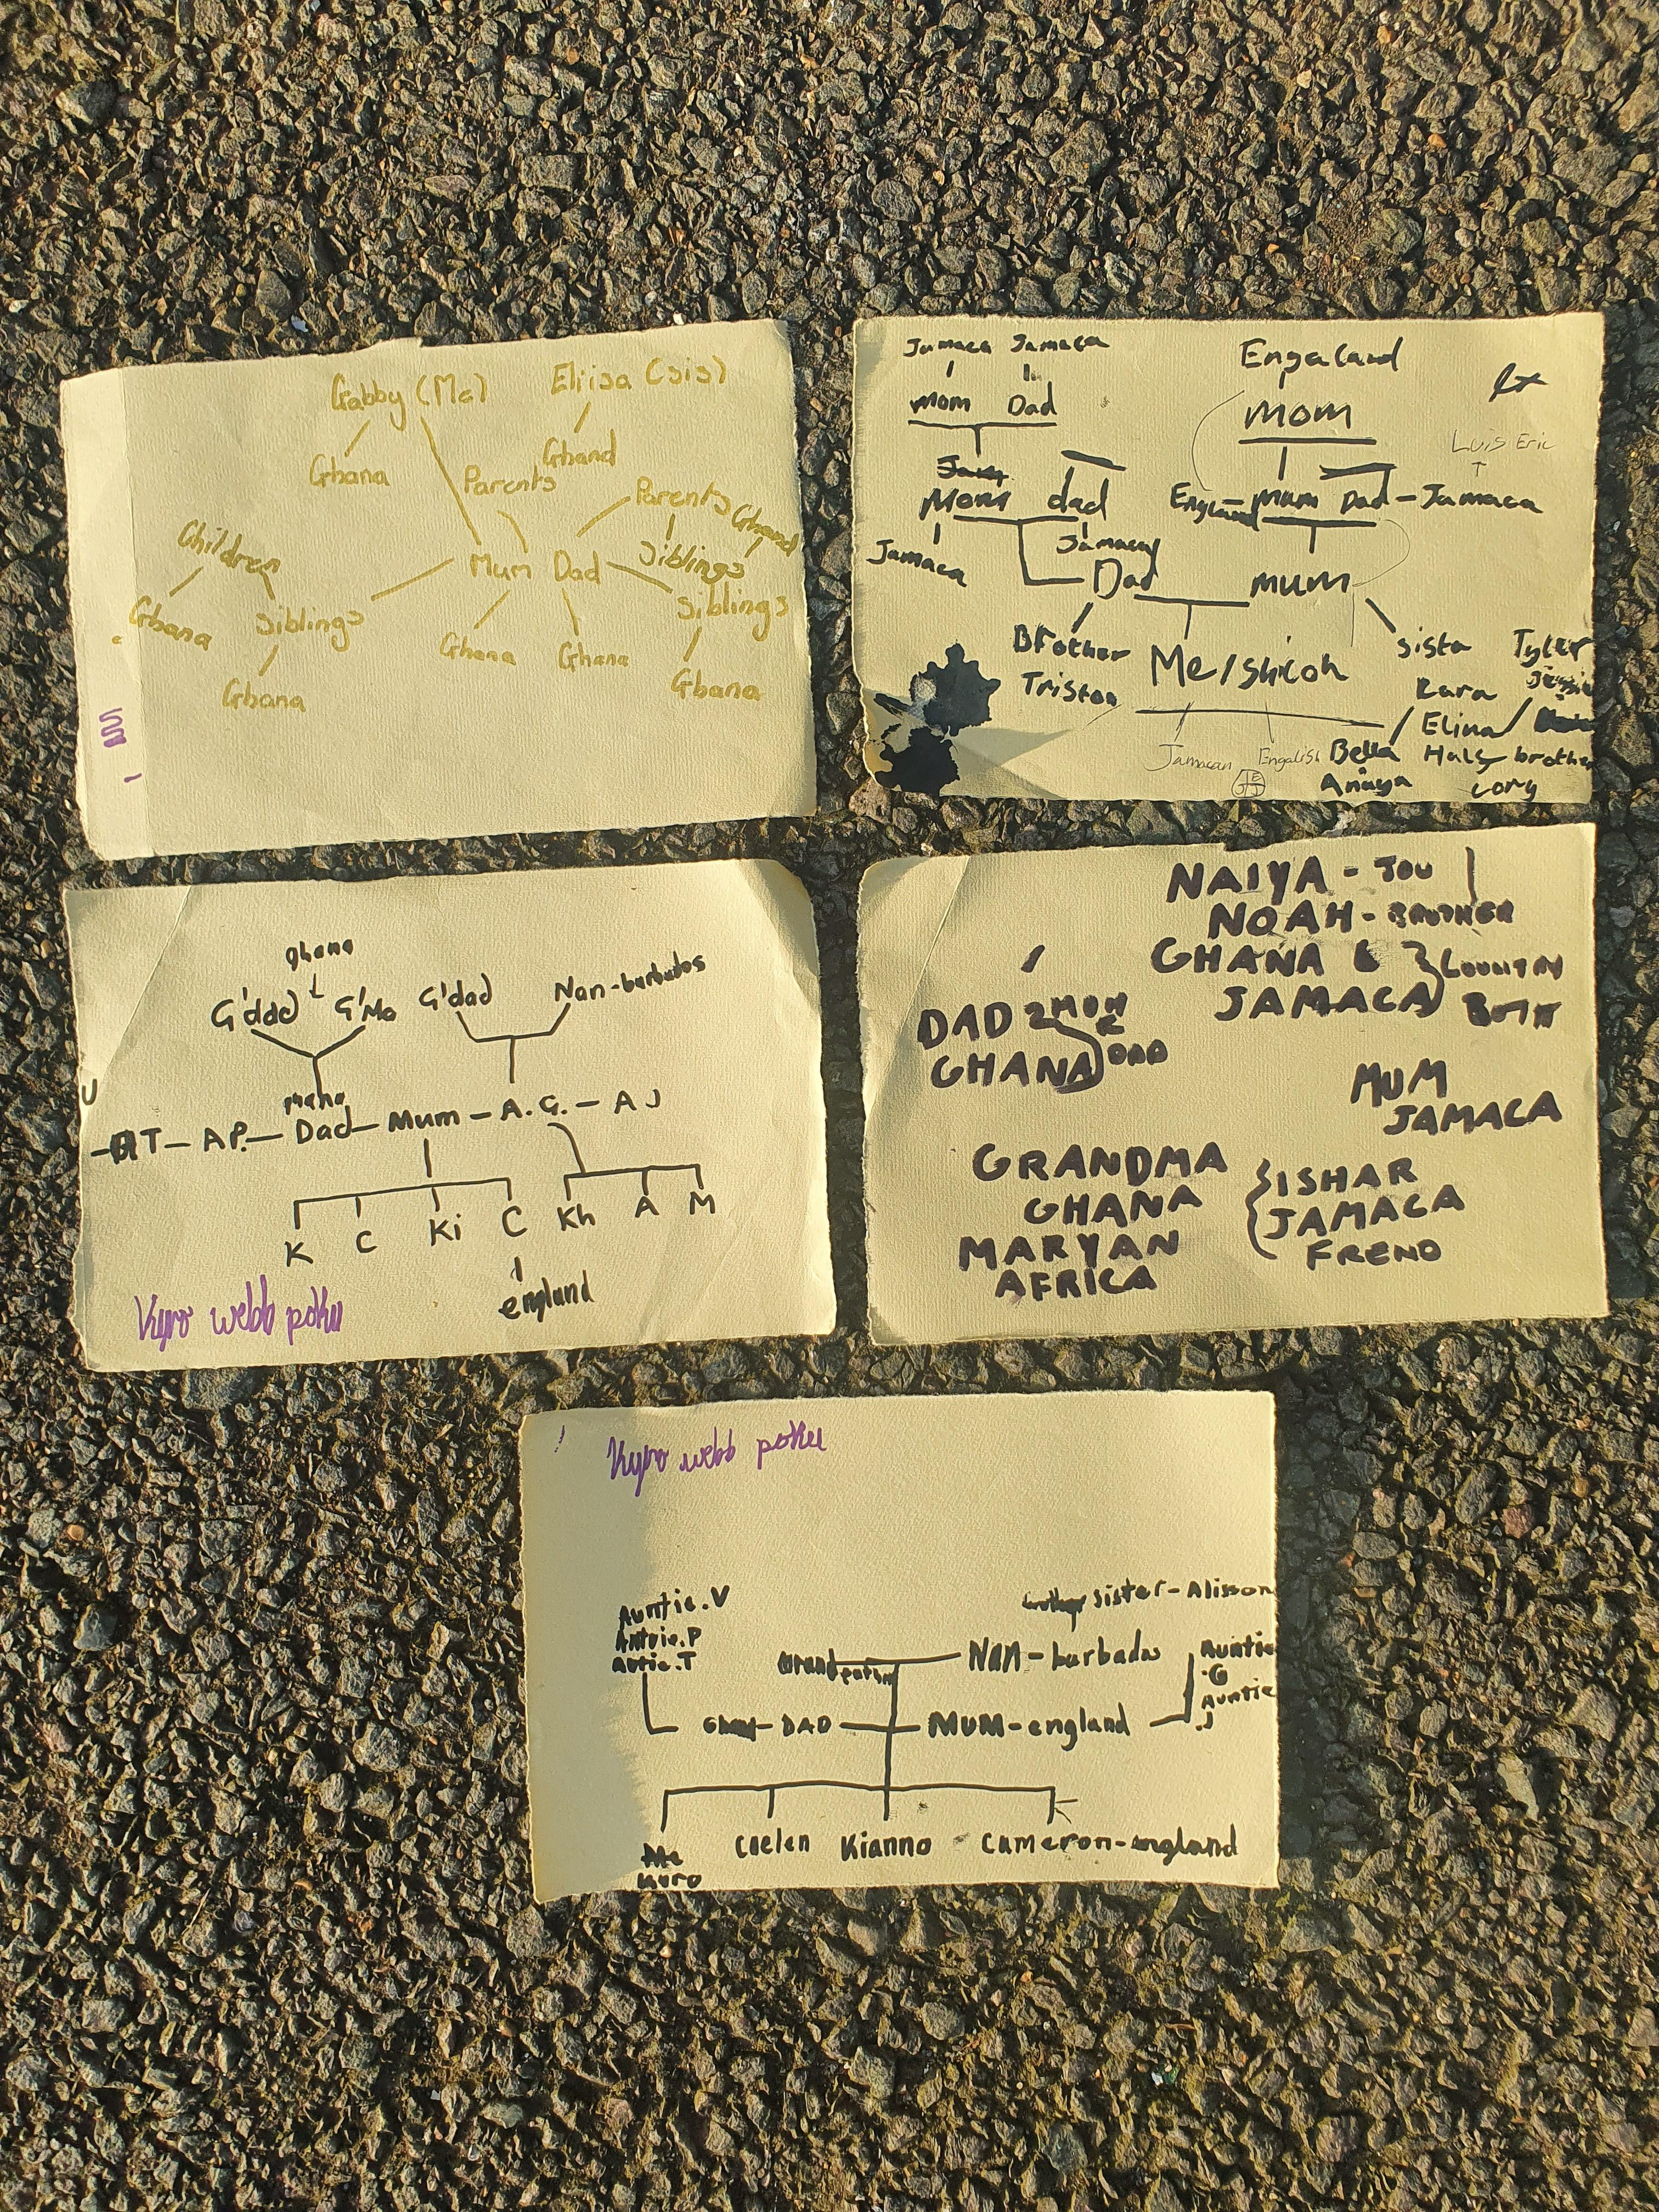 Gabby (Me) Eliisa (sis)
Ghana Ghana
Parents Parents
Ghana
Children Siblings
Mum Dad
Ghana Siblings Siblings
Ghana Ghana
Ghana Ghana
Jamaca Jamaca
Mom Dad
Mom dad
Jamaca Jamaca
Engaland
Mom
Luis Eric
England - Mum Dad - Jamaca
Dad mum
Brother Me/Shicoh sista Tyler
Triston
Rara
Elina
Jamacan Engalish Bella Half brother
J E
J J
Anaya cory
ghana
G'dad G'Ma G'dad Nan-barbados
U
T - AP. - Dad - Mum - A.G. - AJ
K C Ki C Kh A M
england
Kyro webb poku
NAIYA - YOU
NOAH - BROTHER
GHANA &
JAMACA
BOTH
DAD
GHANA DAD
MUM
JAMACA
GRANDMA
GHANA
MARYAN
AFRICA
ISHAR
JAMACA
FREND
Kyro webb poku
Auntie.V
Auntie.P
Autie.T
sister - Alisson
Nan - barbados
Auntie
.G
Auntie
.J
DAD MUM - england
Me
Kyro
Caelen Kianno Cameron - england